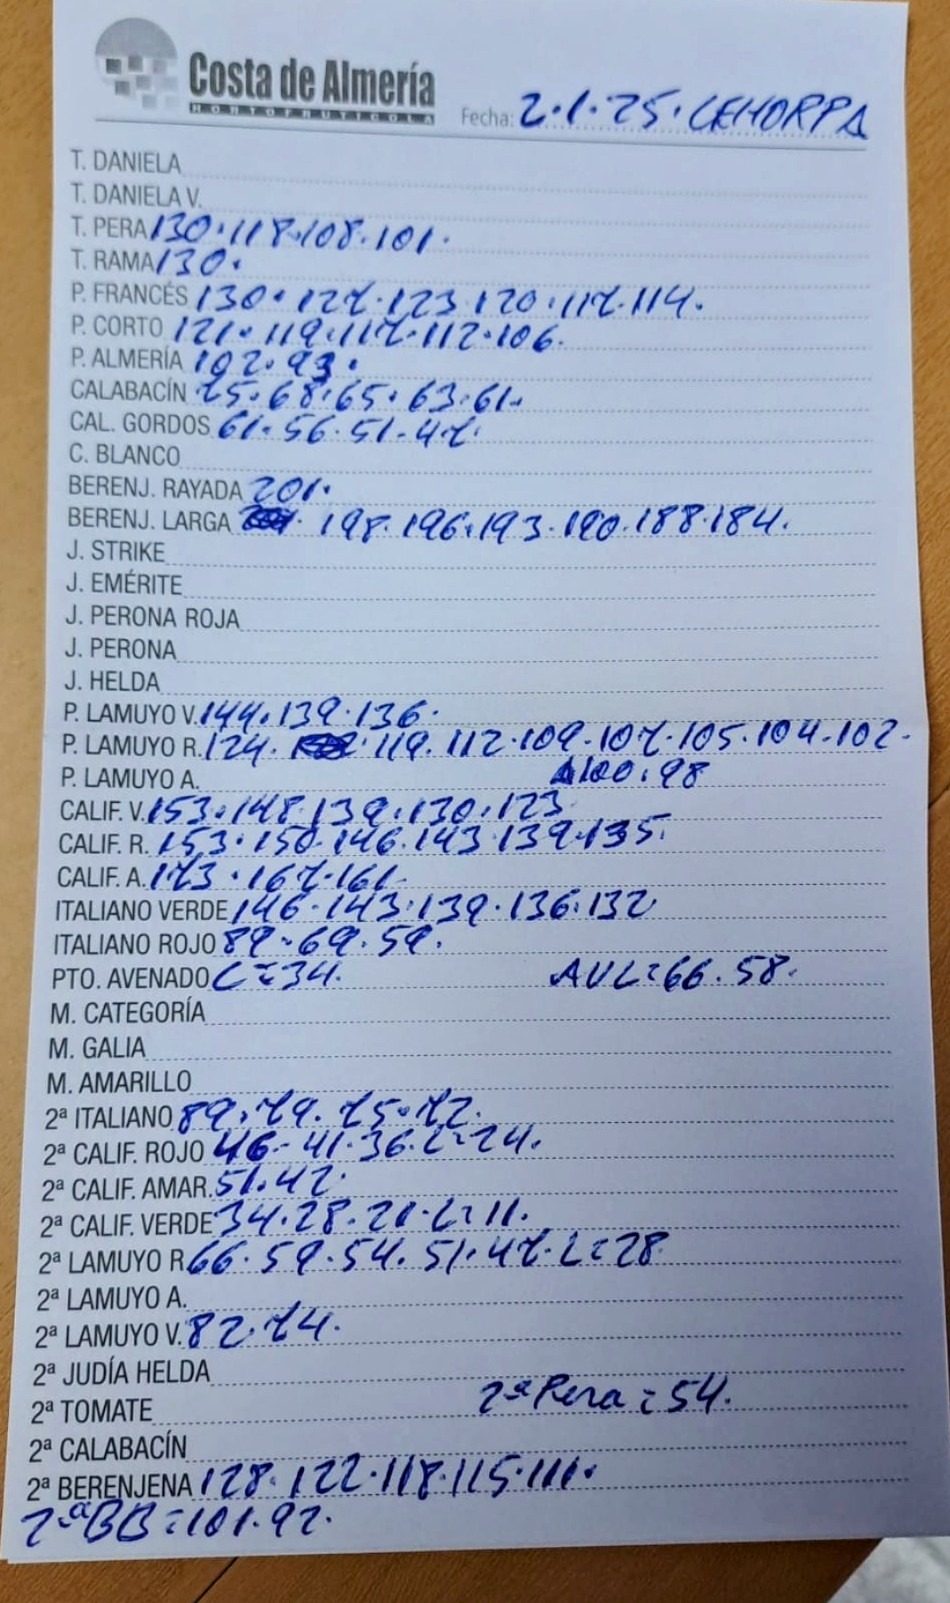 Costa de Almería
HORTOFRUTICOLA
Fecha: 2.1.25. CEHORPA
T. DANIELA
T. DANIELA V.
T. PERA 130.118.108.101.
T. RAMA 130.
P. FRANCÉS 130.127.123.120.117.114.
P. CORTO 121.119.117.112.106.
P. ALMERÍA 102.93.
CALABACÍN 75.68.65.63.61.
CAL. GORDOS 61.56.51.47.
C. BLANCO
BERENJ. RAYADA 201.
BERENJ. LARGA 198.196.193.190.188.184.
J. STRIKE
J. EMÉRITE
J. PERONA ROJA
J. PERONA
J. HELDA
P. LAMUYO V. 144.139.136.
P. LAMUYO R. 124. 119.112.109.107.105.104.102.
P. LAMUYO A. 100.98
CALIF. V. 153.148.139.130.123
CALIF. R. 153.150.146.143.139.135.
CALIF. A. 173.167.161.
ITALIANO VERDE 146.143.139.136.132
ITALIANO ROJO 89.69.59.
PTO. AVENADO C=34. AVL=66.58.
M. CATEGORÍA
M. GALIA
M. AMARILLO
2ª ITALIANO 89.79.75.72.
2ª CALIF. ROJO 46.41.36.L=24.
2ª CALIF. AMAR. 51.42.
2ª CALIF. VERDE 34.28.21.L=11.
2ª LAMUYO R 66.59.54.51.47.L=28
2ª LAMUYO A.
2ª LAMUYO V. 82.74.
2ª JUDÍA HELDA
2ª TOMATE 2ª Pera=54.
2ª CALABACÍN
2ª BERENJENA 128.122.118.115.111.
2ªBB=101.92.